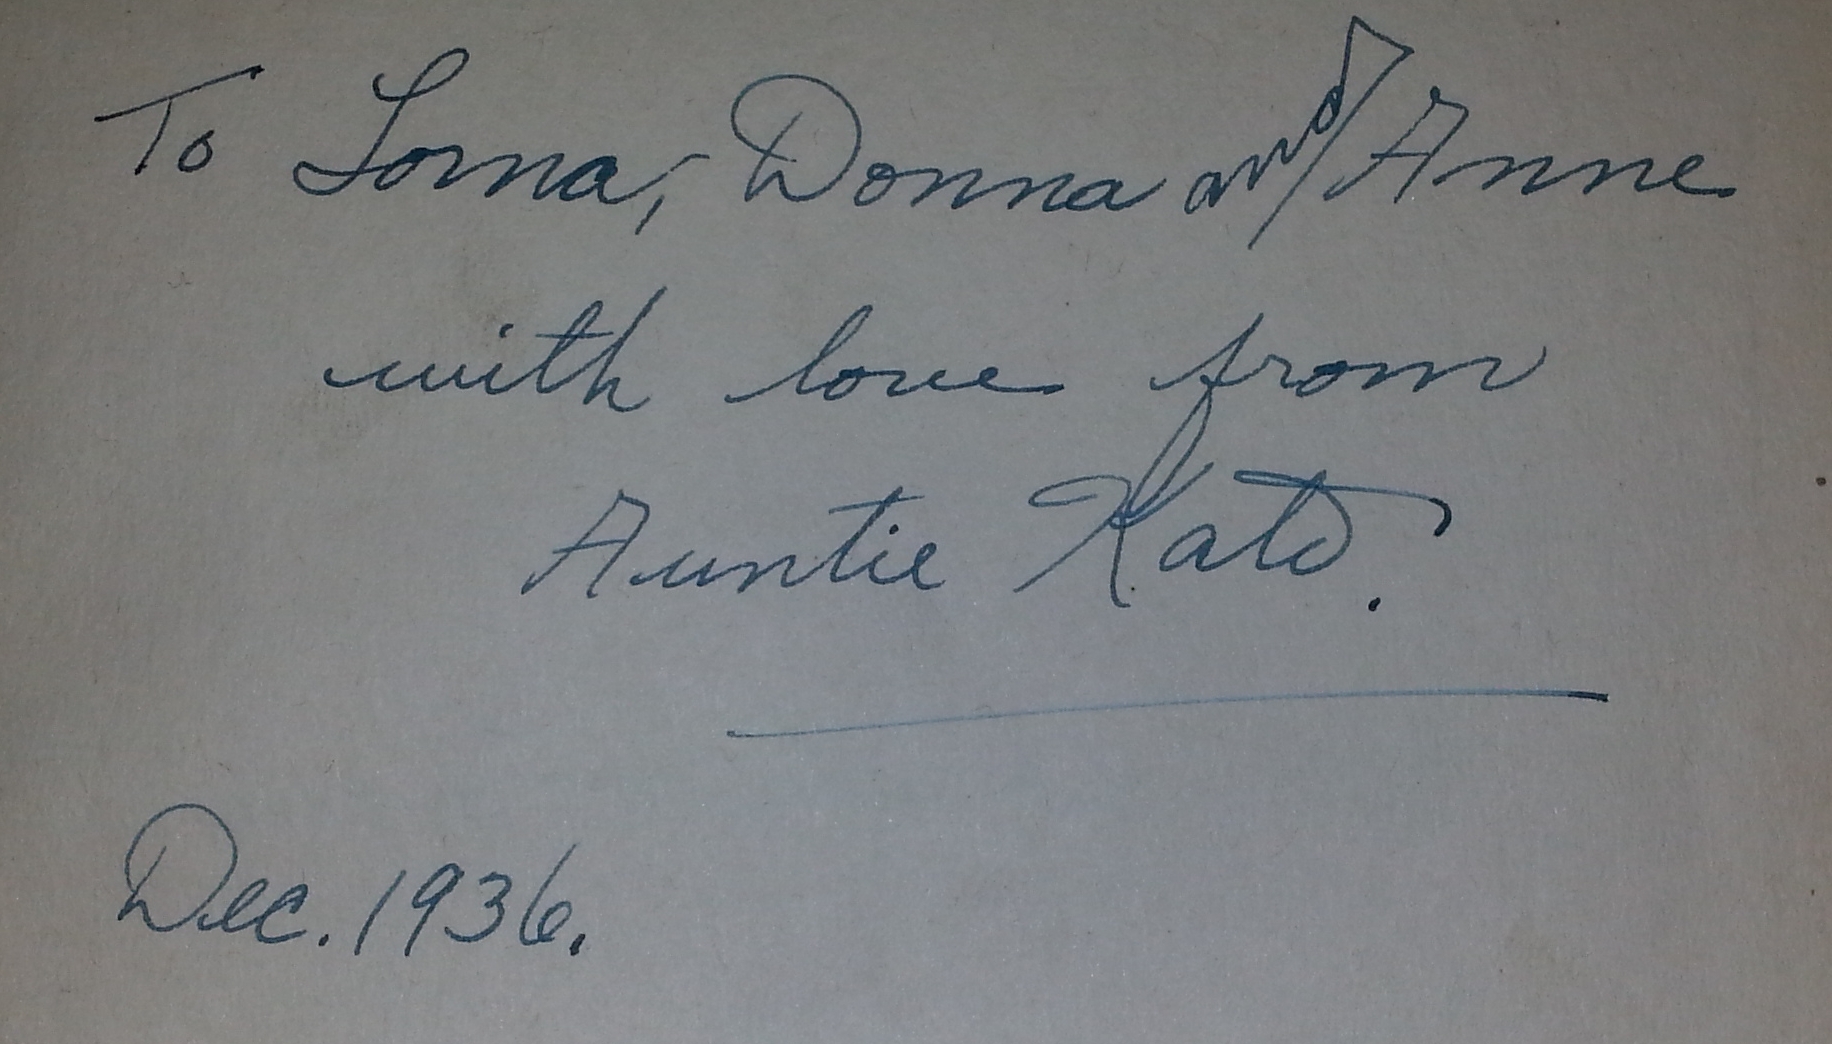 To Lorna, Donna and Anne
with love from
Auntie Kate.
Dec. 1936.